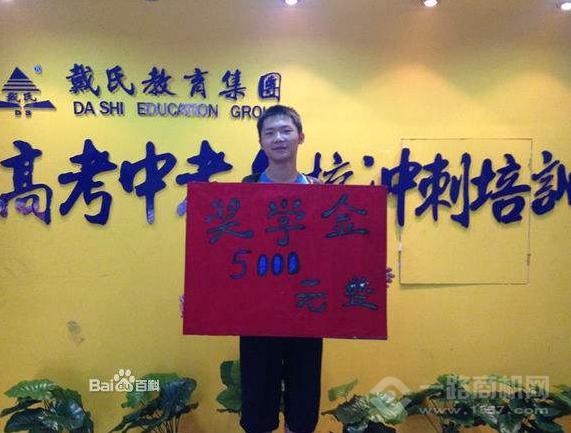 戴氏
DS
®
戴氏教育集团
DA SHI EDUCATION GROUP
高考中考 冲刺培訓
奖学金
5000
元整
Baidu百科
一路商机网
www.1637.com